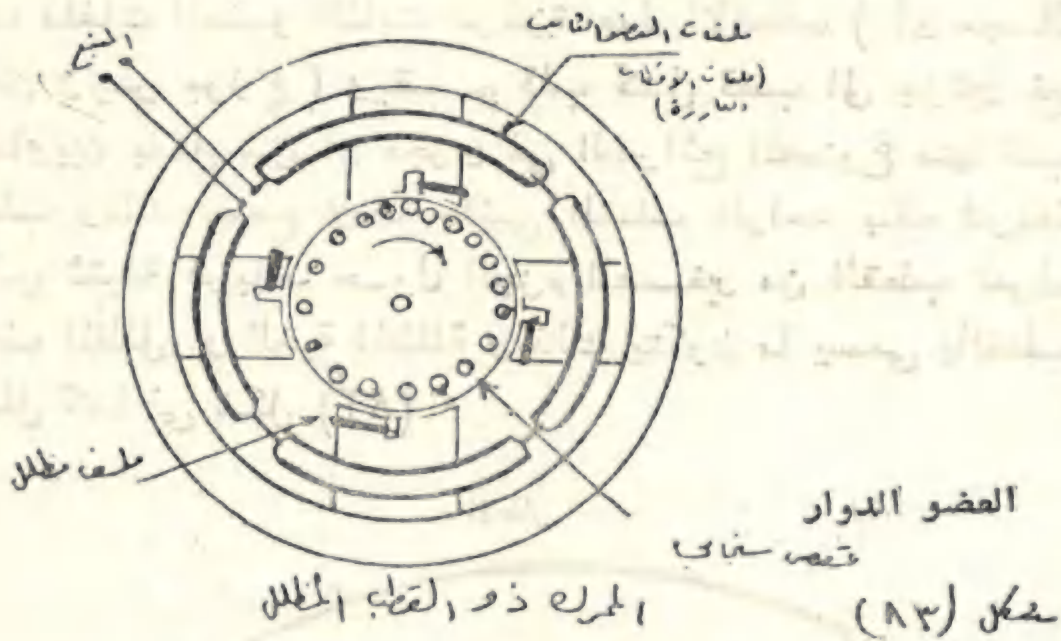 المنبع
ملفات العضو الثابت
(ملفات الأقطاب
البارزة)
ملف مظلل
العضو الدوار
قفص سنجابي
المحرك ذو القطب المظلل
شكل (٨٣)